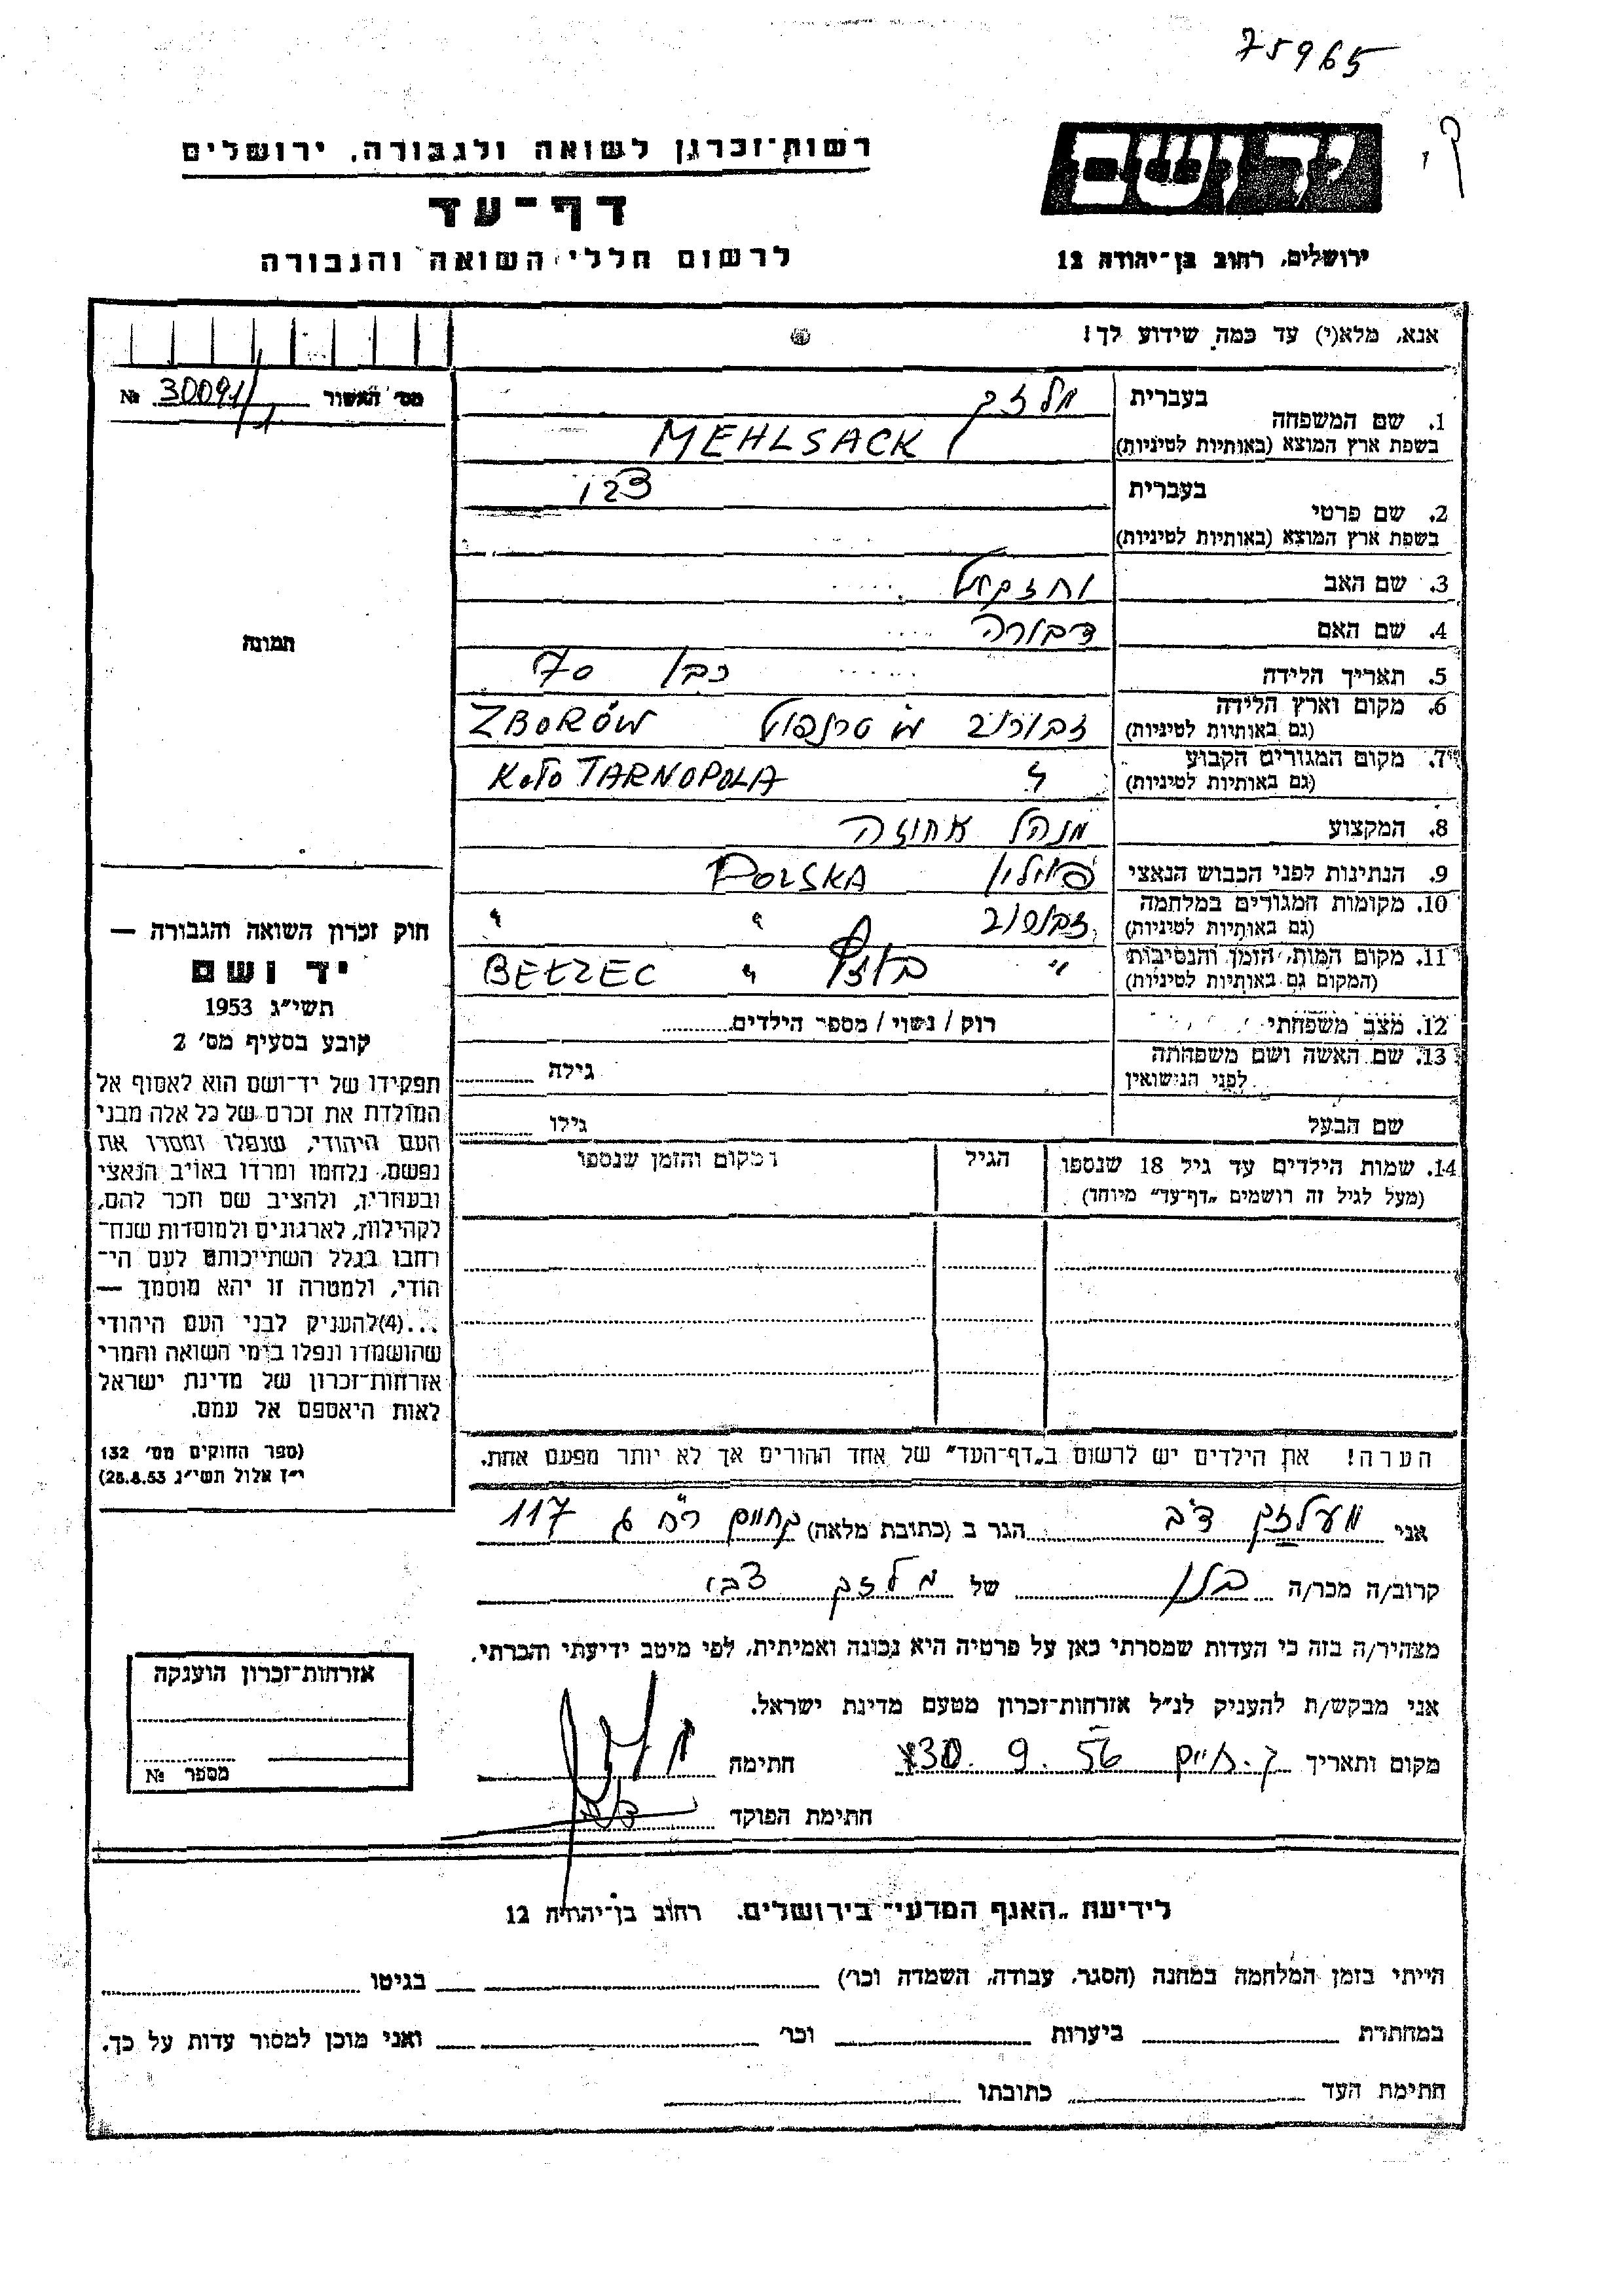 75965
יד ושם
רשות־זכרון לשואה ולגבורה. ירושלים
דף־עד
ירושלים, רחוב בן־יהודה 12
לרשום חללי השואה והגבורה
אנא, מלא(י) עד כמה שידוע לך!
מס׳ האשור № 30091/1
1. שם המשפחה בעברית מלזק
בשפת ארץ המוצא (באותיות לטיניות) MEHLSACK
2. שם פרטי בעברית
בשפת ארץ המוצא (באותיות לטיניות)
3. שם האב יחזקאל
4. שם האם דבורה
5. תאריך הלידה כבן 70
6. מקום וארץ הלידה (גם באותיות לטיניות) ZBORÓW
7. מקום המגורים הקבוע (גם באותיות לטיניות) KOŁO TARNOPOLA
8. המקצוע מנהל אחוזה
9. הנתינות לפני הכבוש הנאצי פוילין POLSKA
10. מקומות המגורים במלחמה (גם באותיות לטיניות) " "
11. מקום המות, הזמן והנסיבות (המקום גם באותיות לטיניות) " " BEŁZEC
12. מצב משפחתי רוק / נשוי / מספר הילדים
13. שם האשה ושם משפחתה לפני הנישואין גילה
שם הבעל גילו
14. שמות הילדים עד גיל 18 שנספו (מעל לגיל זה רושמים „דף־עד" מיוחד) הגיל מקום והזמן שנספו
הערה! את הילדים יש לרשום ב„דף־העד" של אחד ההורים אך לא יותר מפעם אחת.
תמונה
חוק זכרון השואה והגבורה —
יד ושם
תשי״ג 1953
קובע בסעיף מס׳ 2
תפקידו של יד־ושם הוא לאסוף אל
המולדת את זכרם של כל אלה מבני
העם היהודי, שנפלו ומסרו את
נפשם, נלחמו ומרדו באויב הנאצי
ובעוזריו, ולהציב שם וזכר להם,
לקהילות, לארגונים ולמוסדות שנח־
רחבו בגלל השתייכותם לעם הי־
הודי, ולמטרה זו יהא מוסמך —
...(4)להעניק לבני העם היהודי
שהושמדו ונפלו בימי השואה והמרי
אזרחות־זכרון של מדינת ישראל
לאות היאספם אל עמם.
(ספר החוקים מס׳ 132
י״ז אלול תשי״ג 28.8.53)
אני הגר ב (כתובת מלאה) 117
קרוב/ה מכר/ה של מלזק צבי
מצהיר/ה בזה כי העדות שמסרתי כאן על פרטיה היא נכונה ואמיתית, לפי מיטב ידיעתי והכרתי.
אני מבקש/ת להעניק לנ״ל אזרחות־זכרון מטעם מדינת ישראל.
מקום ותאריך ק. חיים 30. 9. 56 חתימה
חתימת הפוקד
אזרחות־זכרון הוענקה
מספר №
לידיעת „האגף המדעי" בירושלים. רחוב בן־יהודה 12
הייתי בזמן המלחמה במחנה (הסגר, עבודה, השמדה וכו׳) בגיטו
במחתרת ביערות וכו׳ ואני מוכן למסור עדות על כך.
חתימת העד כתובתו